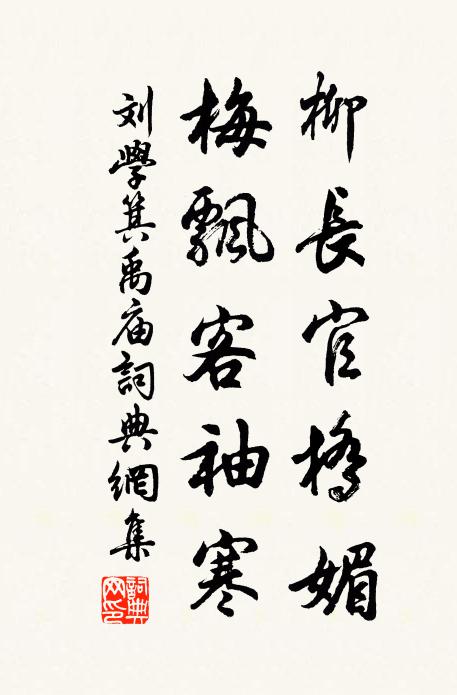 柳長官橋媚
梅飄客袖寒
刘學箕禹庙詞典網集
詞典网印